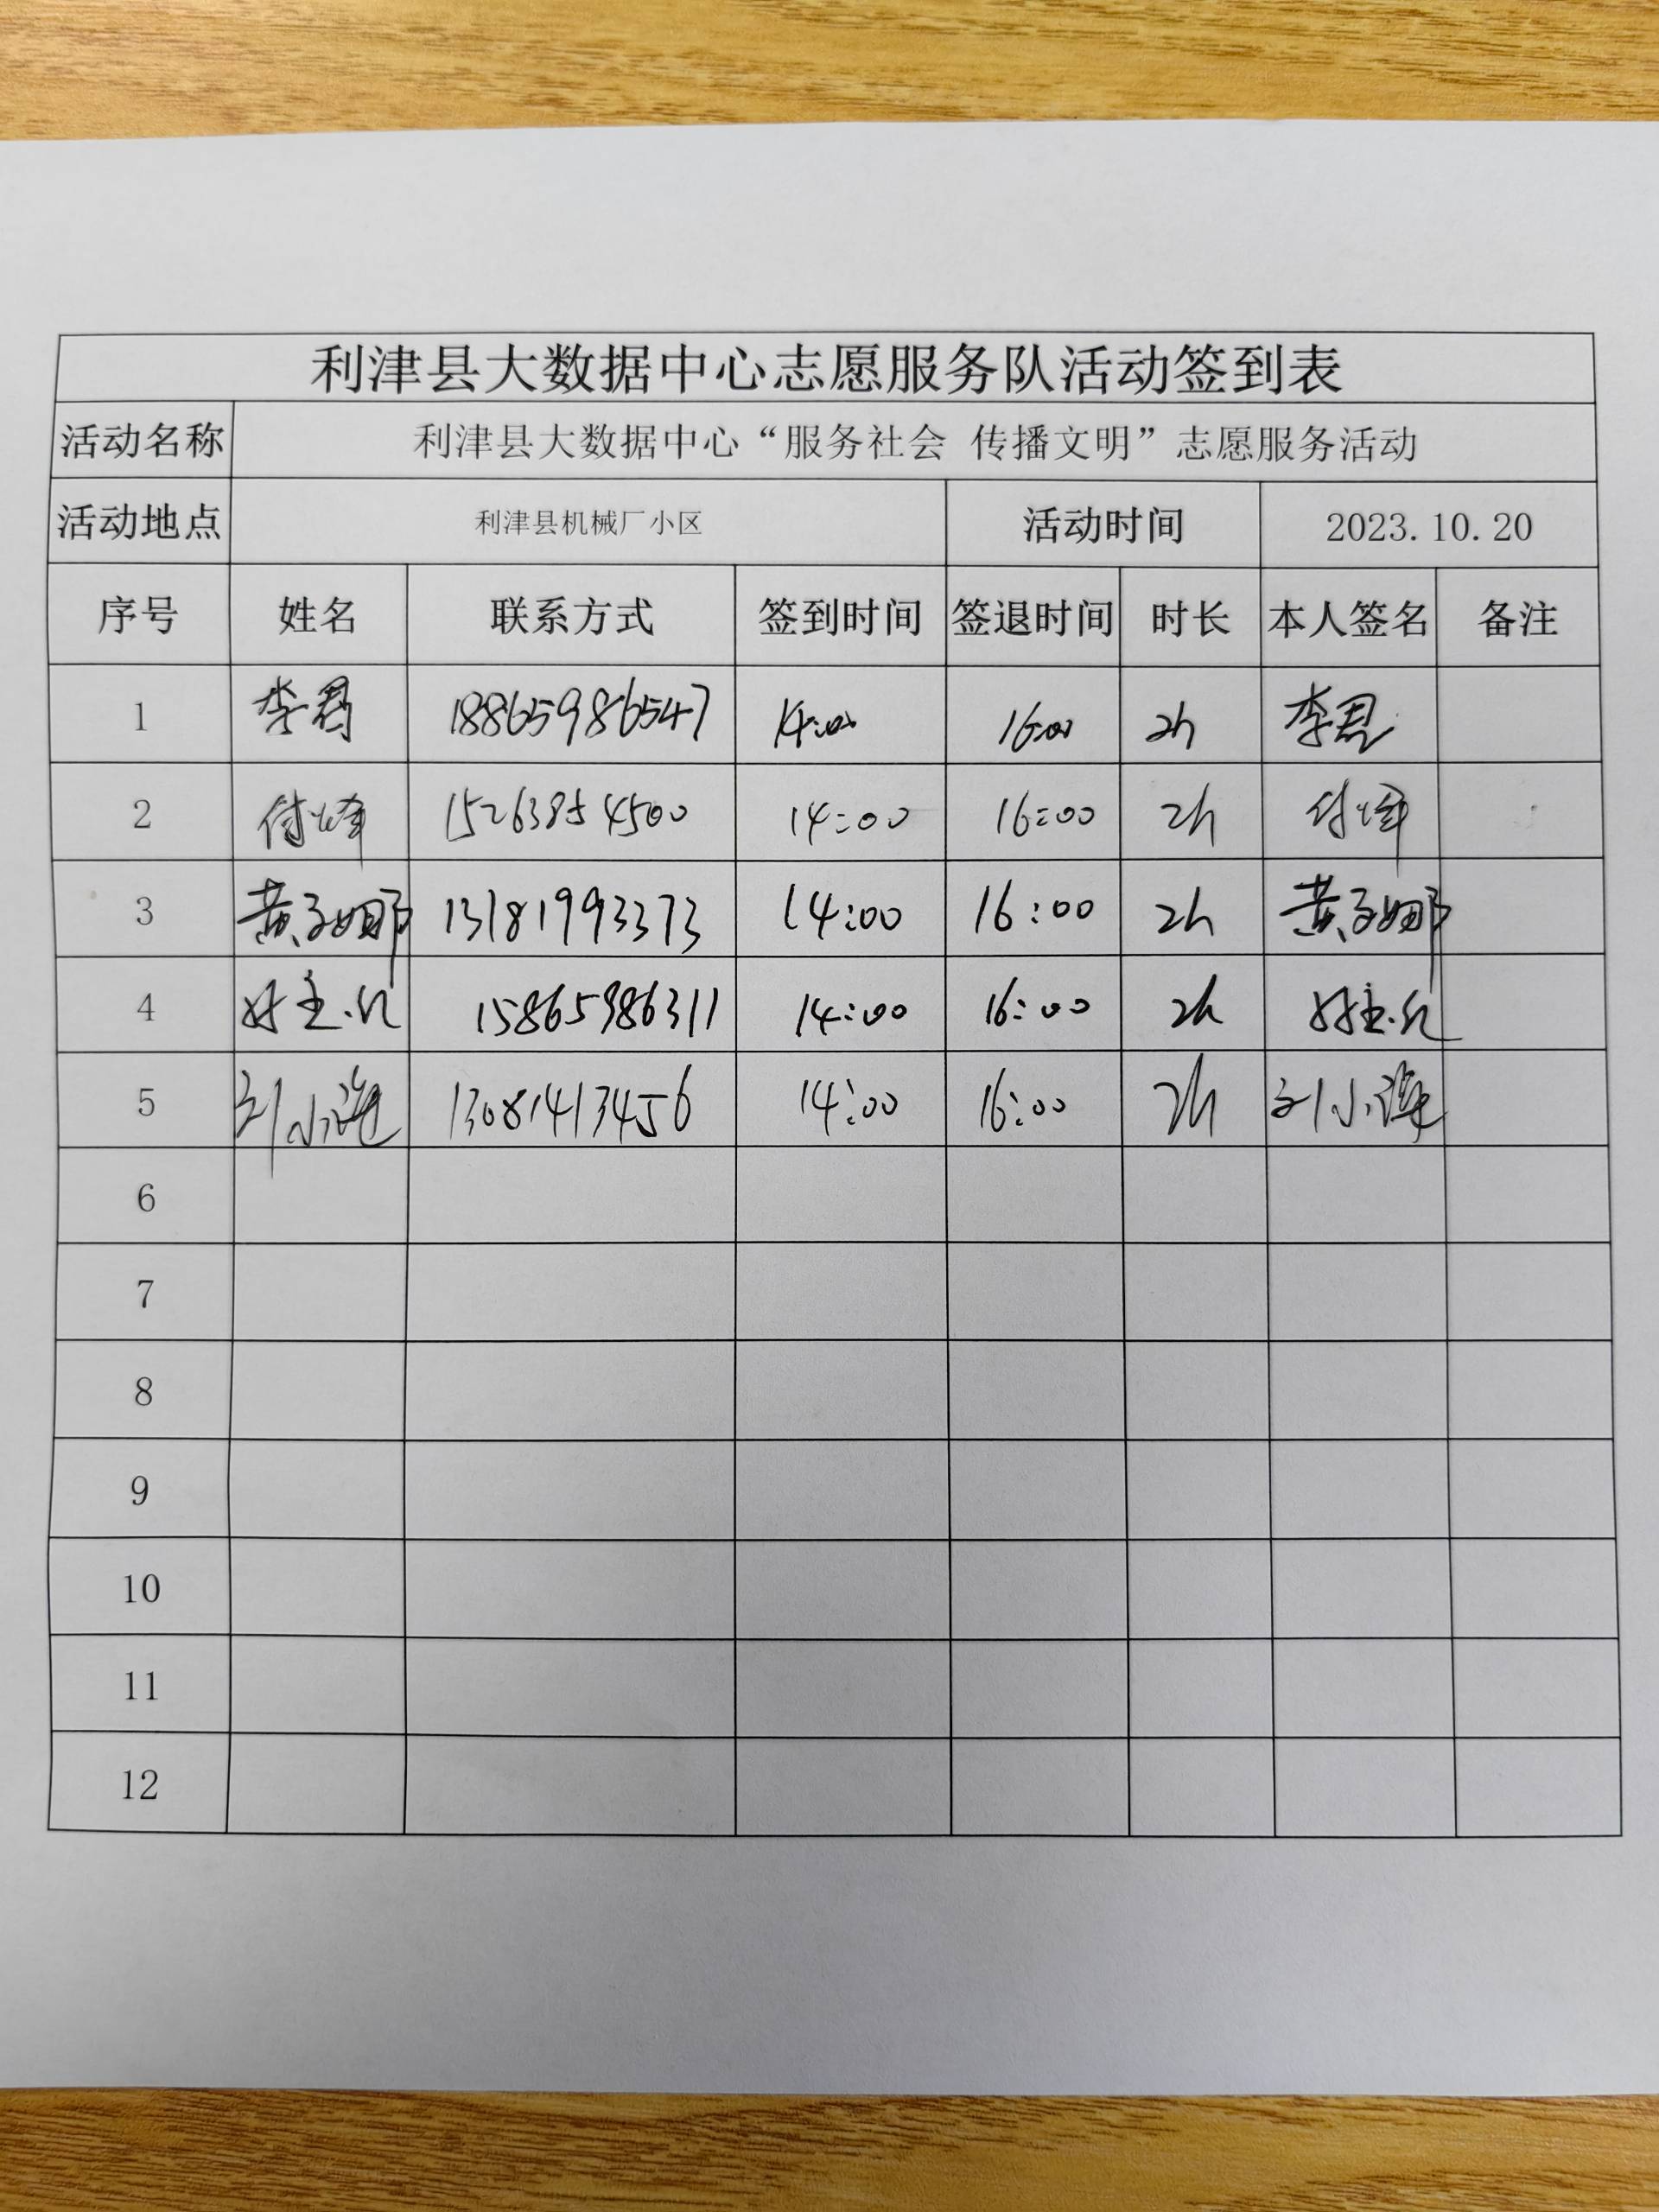 利津县大数据中心志愿服务队活动签到表
活动名称 利津县大数据中心“服务社会 传播文明”志愿服务活动
活动地点 利津县机械厂小区 活动时间 2023.10.20
序号 姓名 联系方式 签到时间 签退时间 时长 本人签名 备注
1 李君 18865986547 14:00 16:00 2h 李君
2 付峰 15263854500 14:00 16:00 2h 付峰
3 黄子娜 13181993373 14:00 16:00 2h 黄子娜
4 15865986311 14:00 16:00 2h
5 刘小莲 13081413456 14:00 16:00 2h 刘小莲
6
7
8
9
10
11
12